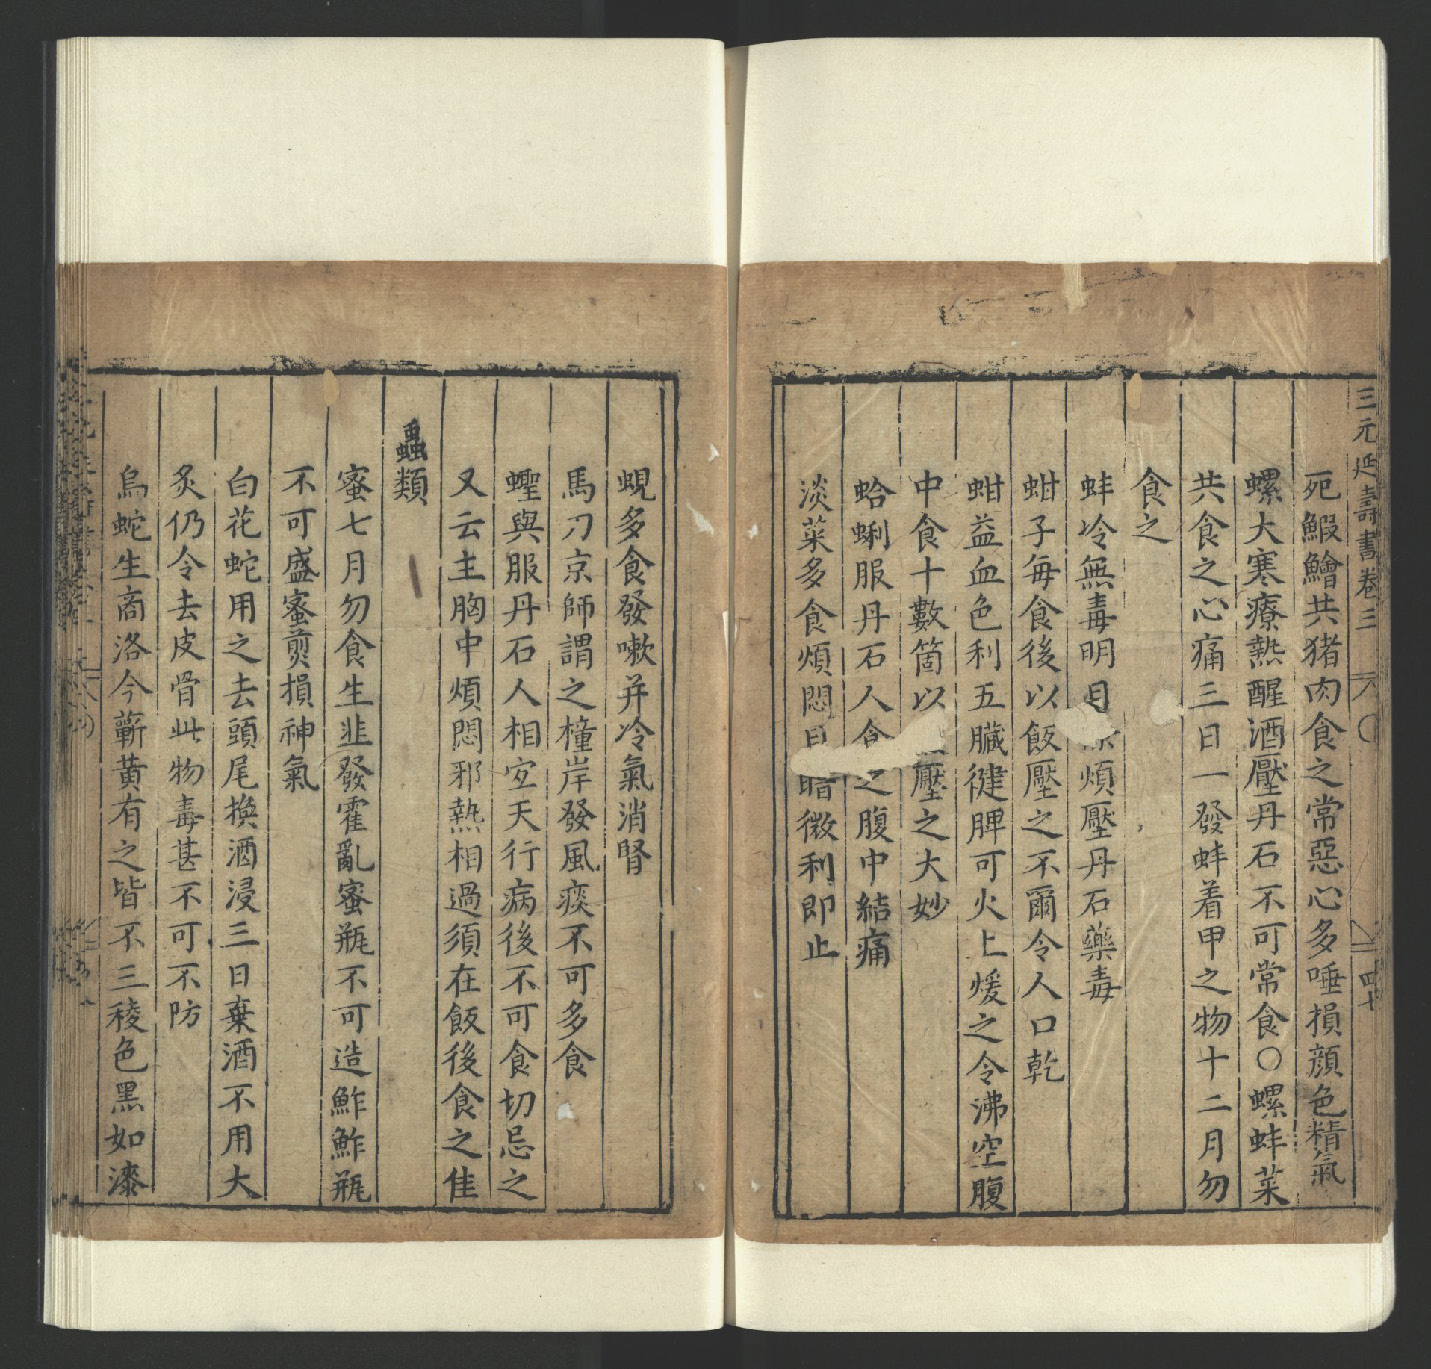 三元延壽書卷三
四十
𣧑鰕鱠共猪肉食之常惡心多唾損顔色精氣
螺大寒療熱醒酒壓丹石不可常食〇螺蚌菜
共食之心痛三日一發蚌着甲之物十二月勿
食之
蚌冷無毒明目 煩壓丹石藥毒
蚶子每食後以飯壓之不爾令人口乾
蚶益血色利五臟健脾可火上煖之令沸空腹
中食十數箇以 壓之大妙
蛤蜊服丹石人食之腹中結痛
淡菜多食煩悶目暗微利即止
蜆多食發嗽并冷氣消腎
馬刀京師謂之㯿岸發風痰不可多食
蟶與服丹石人相宜天行病後不可食切忌之
又云主胸中煩悶邪熱相過須在飯後食之佳
蟲類
蜜七月勿食生韭發霍亂蜜瓶不可造鮓鮓瓶
不可盛蜜煎損神氣
白花蛇用之去頭尾換酒浸三日棄酒不用大
炙仍令去皮骨此物毒甚不可不防
烏蛇生商洛今蘄黃有之皆不三稜色黑如漆